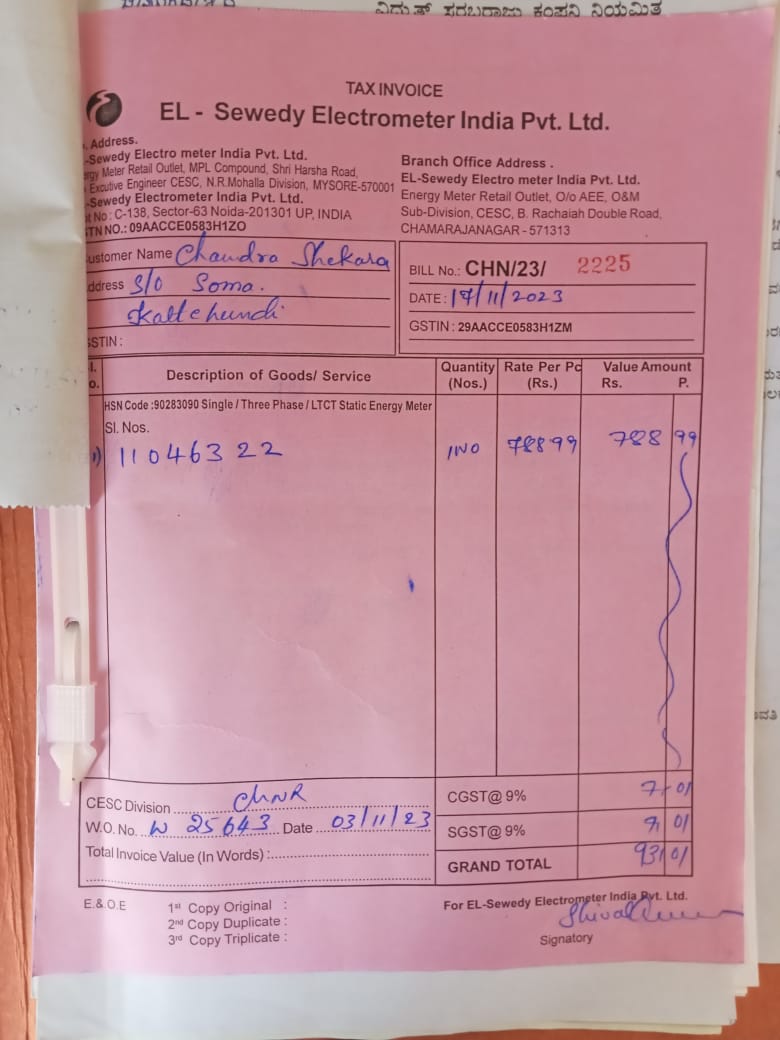 ವಿದ್ಯುತ್ ಸರಬರಾಜು ಕಂಪನಿ ನಿಯಮಿತ
TAX INVOICE
EL - Sewedy Electrometer India Pvt. Ltd.
. Address.
-Sewedy Electro meter India Pvt. Ltd.
ergy Meter Retail Outlet, MPL Compound, Shri Harsha Road,
Excutive Engineer CESC, N.R.Mohalla Division, MYSORE-570001
-Sewedy Electrometer India Pvt. Ltd.
t No : C-138, Sector-63 Noida-201301 UP, INDIA
STN NO.: 09AACCE0583H1ZO
Branch Office Address .
EL-Sewedy Electro meter India Pvt. Ltd.
Energy Meter Retail Outlet, O/o AEE, O&M
Sub-Division, CESC, B. Rachaiah Double Road,
CHAMARAJANAGAR - 571313
ustomer Name Chandra Shekara
ddress S/O Soma.
Kallchundi
GSTIN :
BILL No.: CHN/23/ 2225
DATE : 17/11/2023
GSTIN : 29AACCE0583H1ZM
l. Description of Goods/ Service Quantity Rate Per Pc Value Amount
o. (Nos.) (Rs.) Rs. P.
HSN Code :90283090 Single / Three Phase / LTCT Static Energy Meter
Sl. Nos.
1) 11046322 1NO 788 99 788 99
CESC Division CHNR CGST@ 9% 7 01
W.O. No. W 25643 Date 03/11/23 SGST@ 9% 7 01
Total Invoice Value (In Words) : GRAND TOTAL 931 01
E.&.O.E 1st Copy Original :
2nd Copy Duplicate :
3rd Copy Triplicate :
For EL-Sewedy Electrometer India Pvt. Ltd.
Signatory